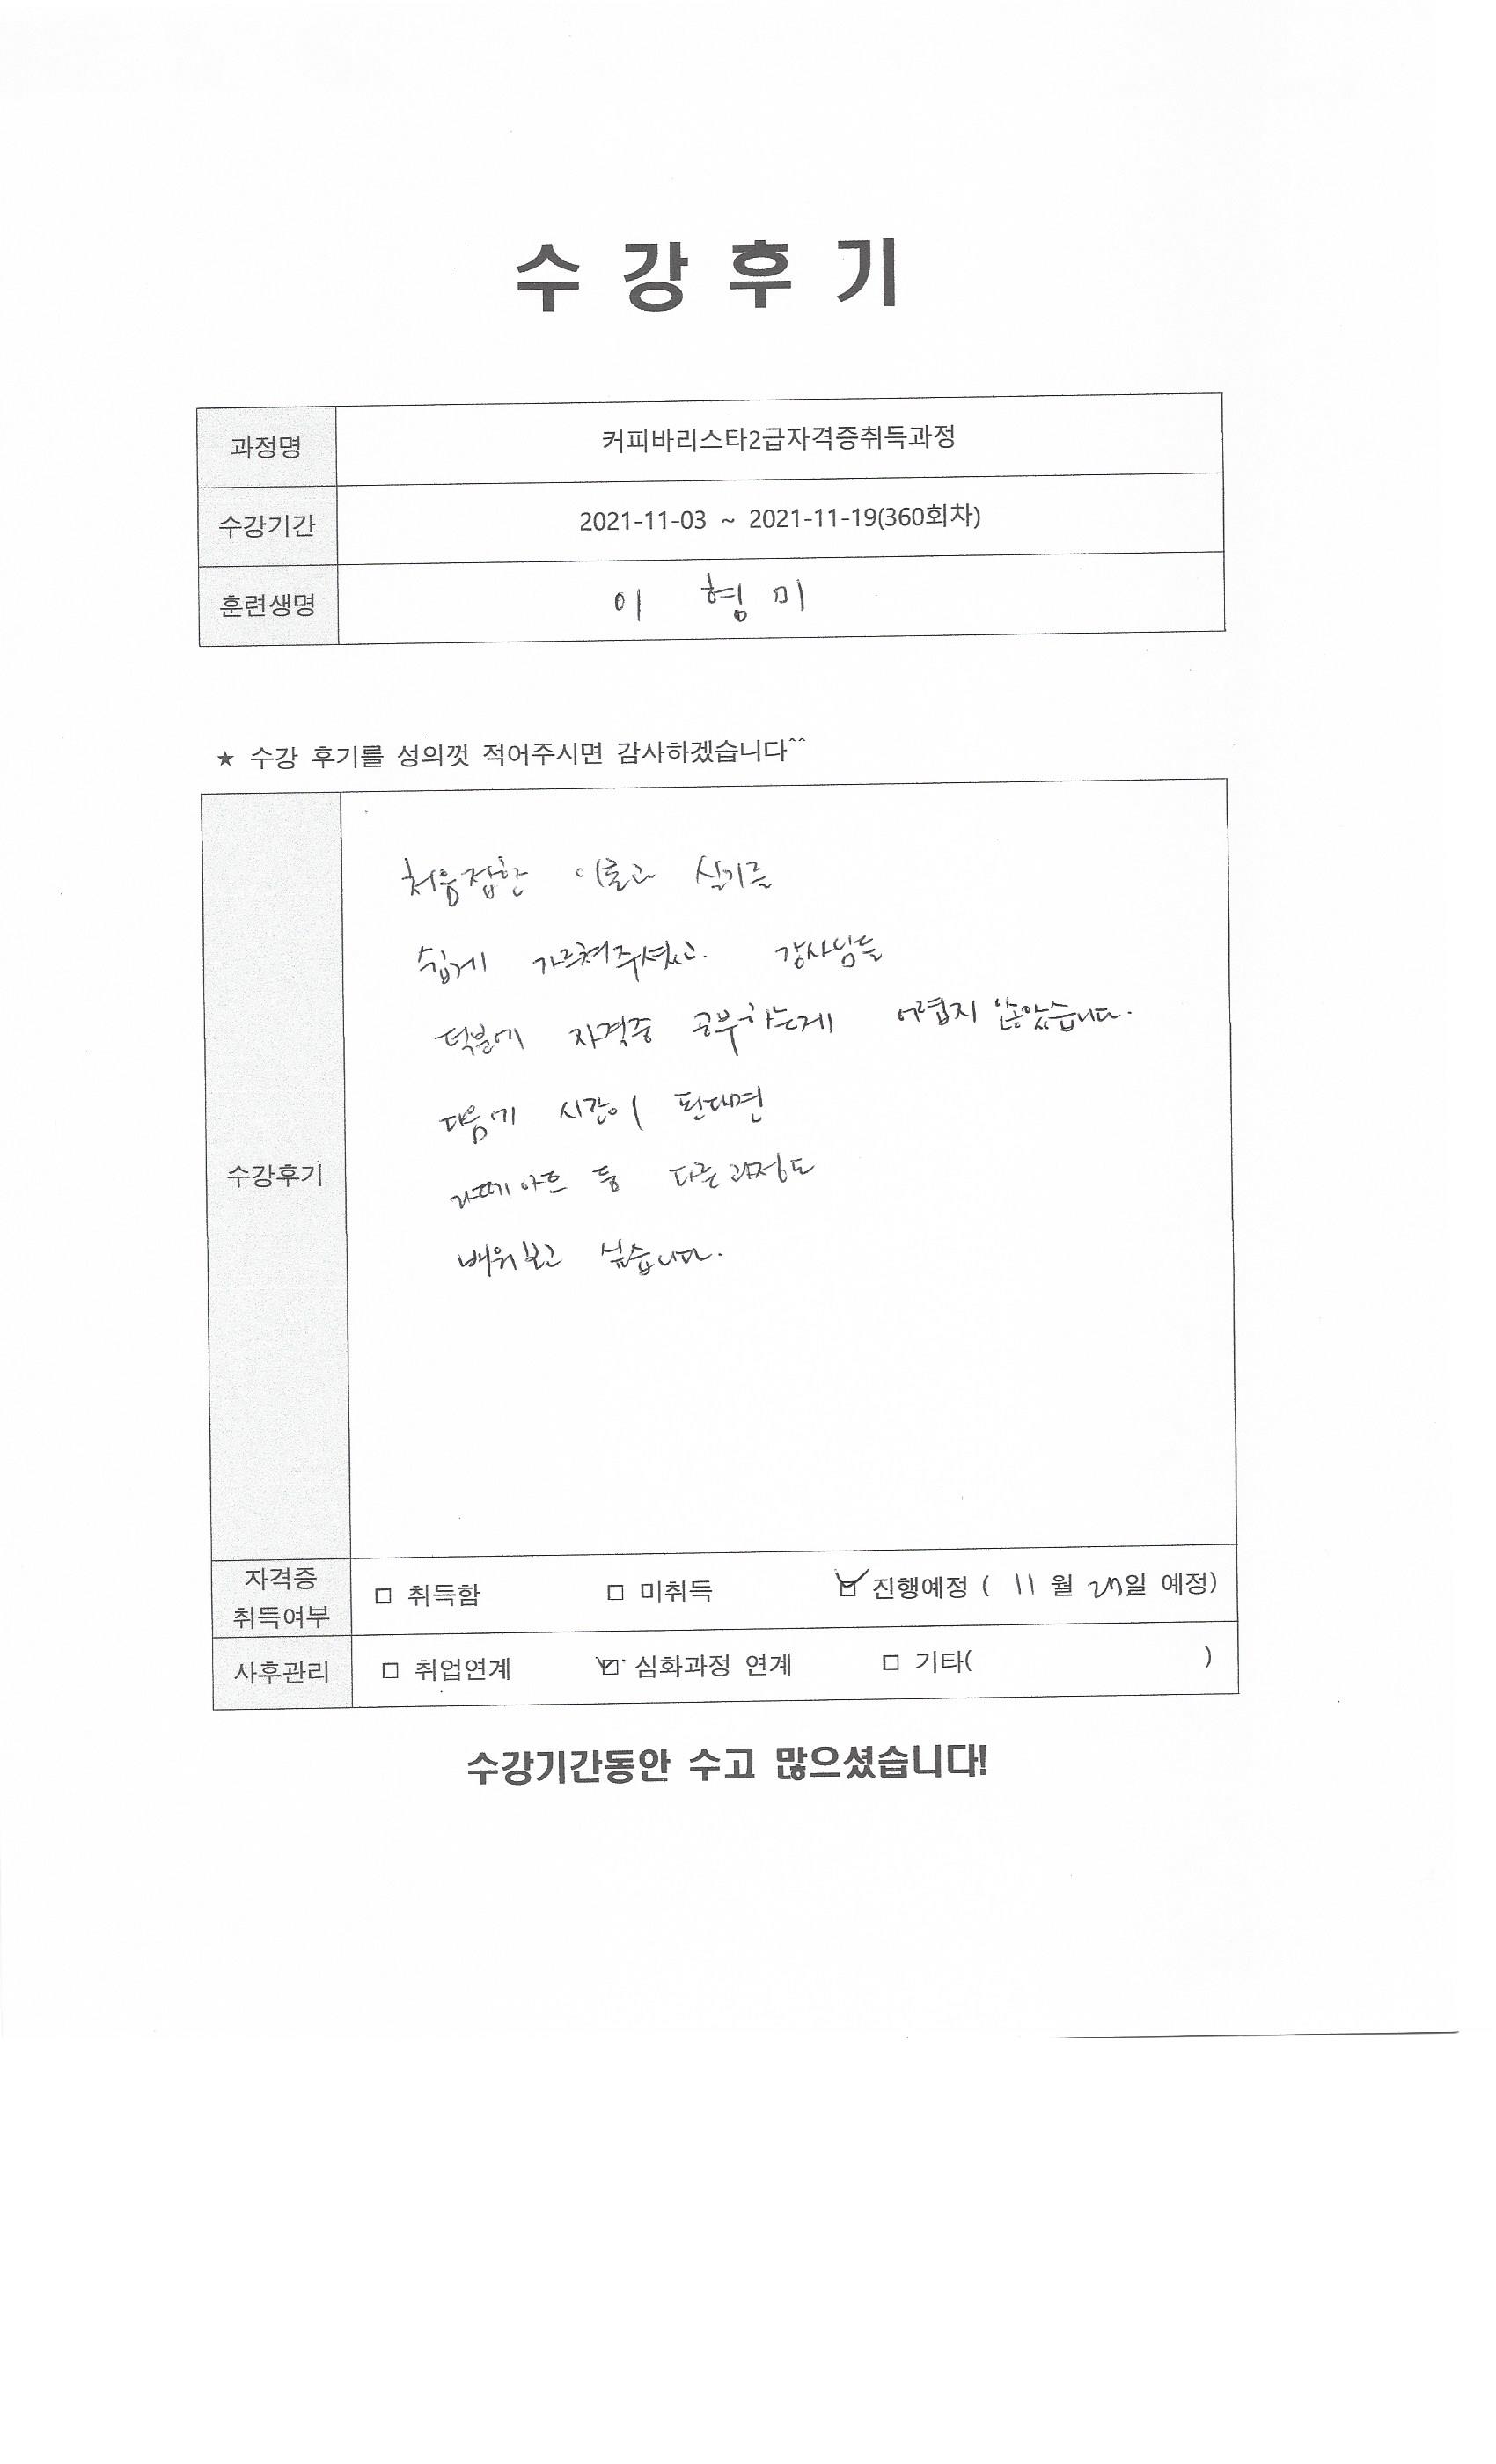 수강후기
과정명 커피바리스타2급자격증취득과정
수강기간 2021-11-03 ~ 2021-11-19(360회차)
훈련생명 이 형 미
★ 수강 후기를 성의껏 적어주시면 감사하겠습니다^^
처음접한 이론과 실기를
쉽게 가르쳐주셨고. 강사님들
덕분에 자격증 공부하는게 어렵지 않았습니다.
다음에 시간이 된다면
라떼아트 등 다른과정도
수강후기
배워보고 싶습니다.
자격증 취득여부 □ 취득함 □ 미취득 ☑ 진행예정 ( 11 월 27일 예정)
사후관리 □ 취업연계 ☑ 심화과정 연계 □ 기타( )
수강기간동안 수고 많으셨습니다!